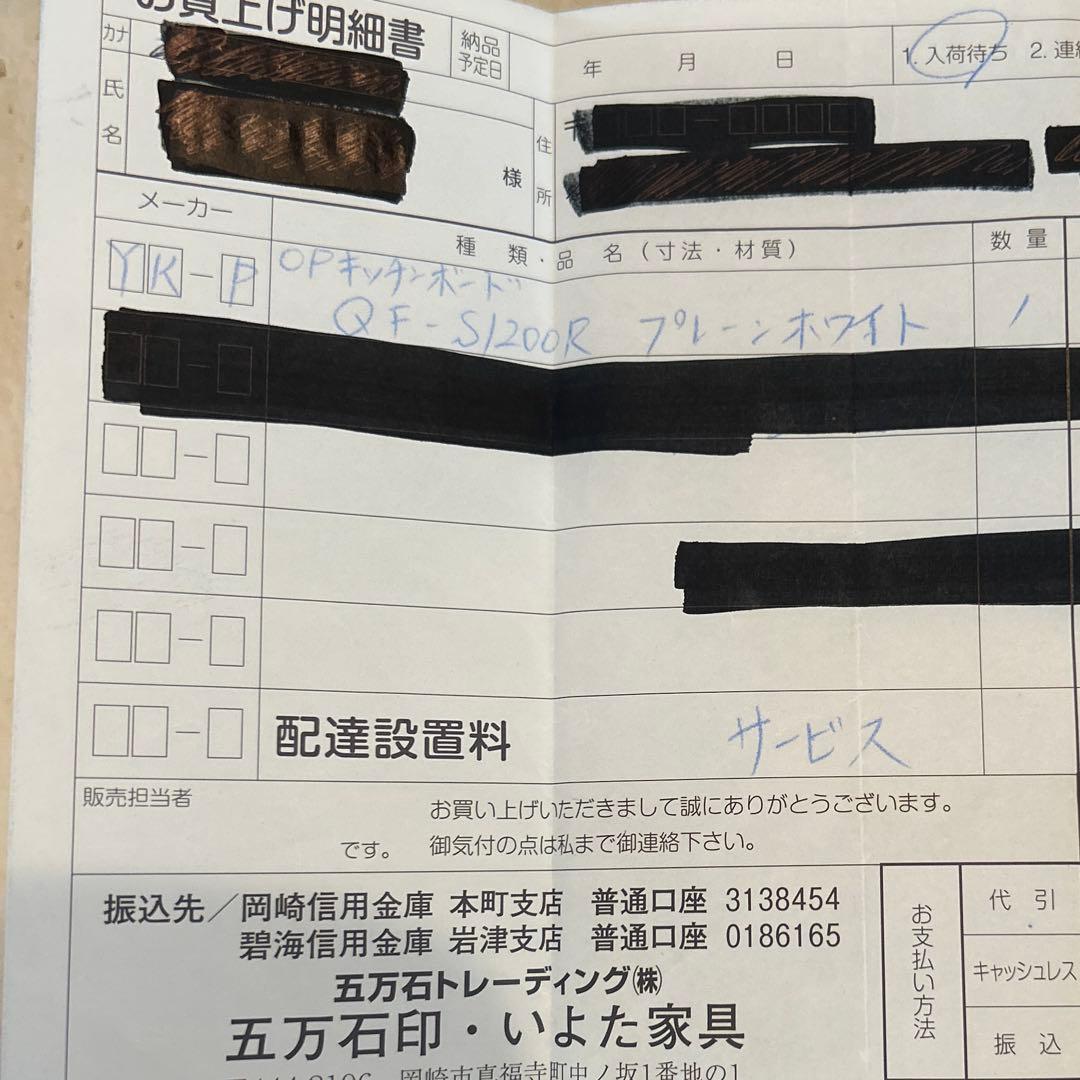 お買上げ明細書
納品予定日
年 月 日
1. 入荷待ち 2. 連絡
カナ
氏名
様
住所
メーカー
種類・品名(寸法・材質)
数量
YK-P
OPキッチンボード
QF-S1200R プレーンホワイト
1
配達設置料
サービス
販売担当者
お買い上げいただきまして誠にありがとうございます。
です。 御気付の点は私まで御連絡下さい。
振込先/岡崎信用金庫 本町支店 普通口座 3138454
碧海信用金庫 岩津支店 普通口座 0186165
五万石トレーディング㈱
五万石印・いよた家具
岡崎市真福寺町中ノ坂1番地の1
お支払い方法
代引
キャッシュレス
振込